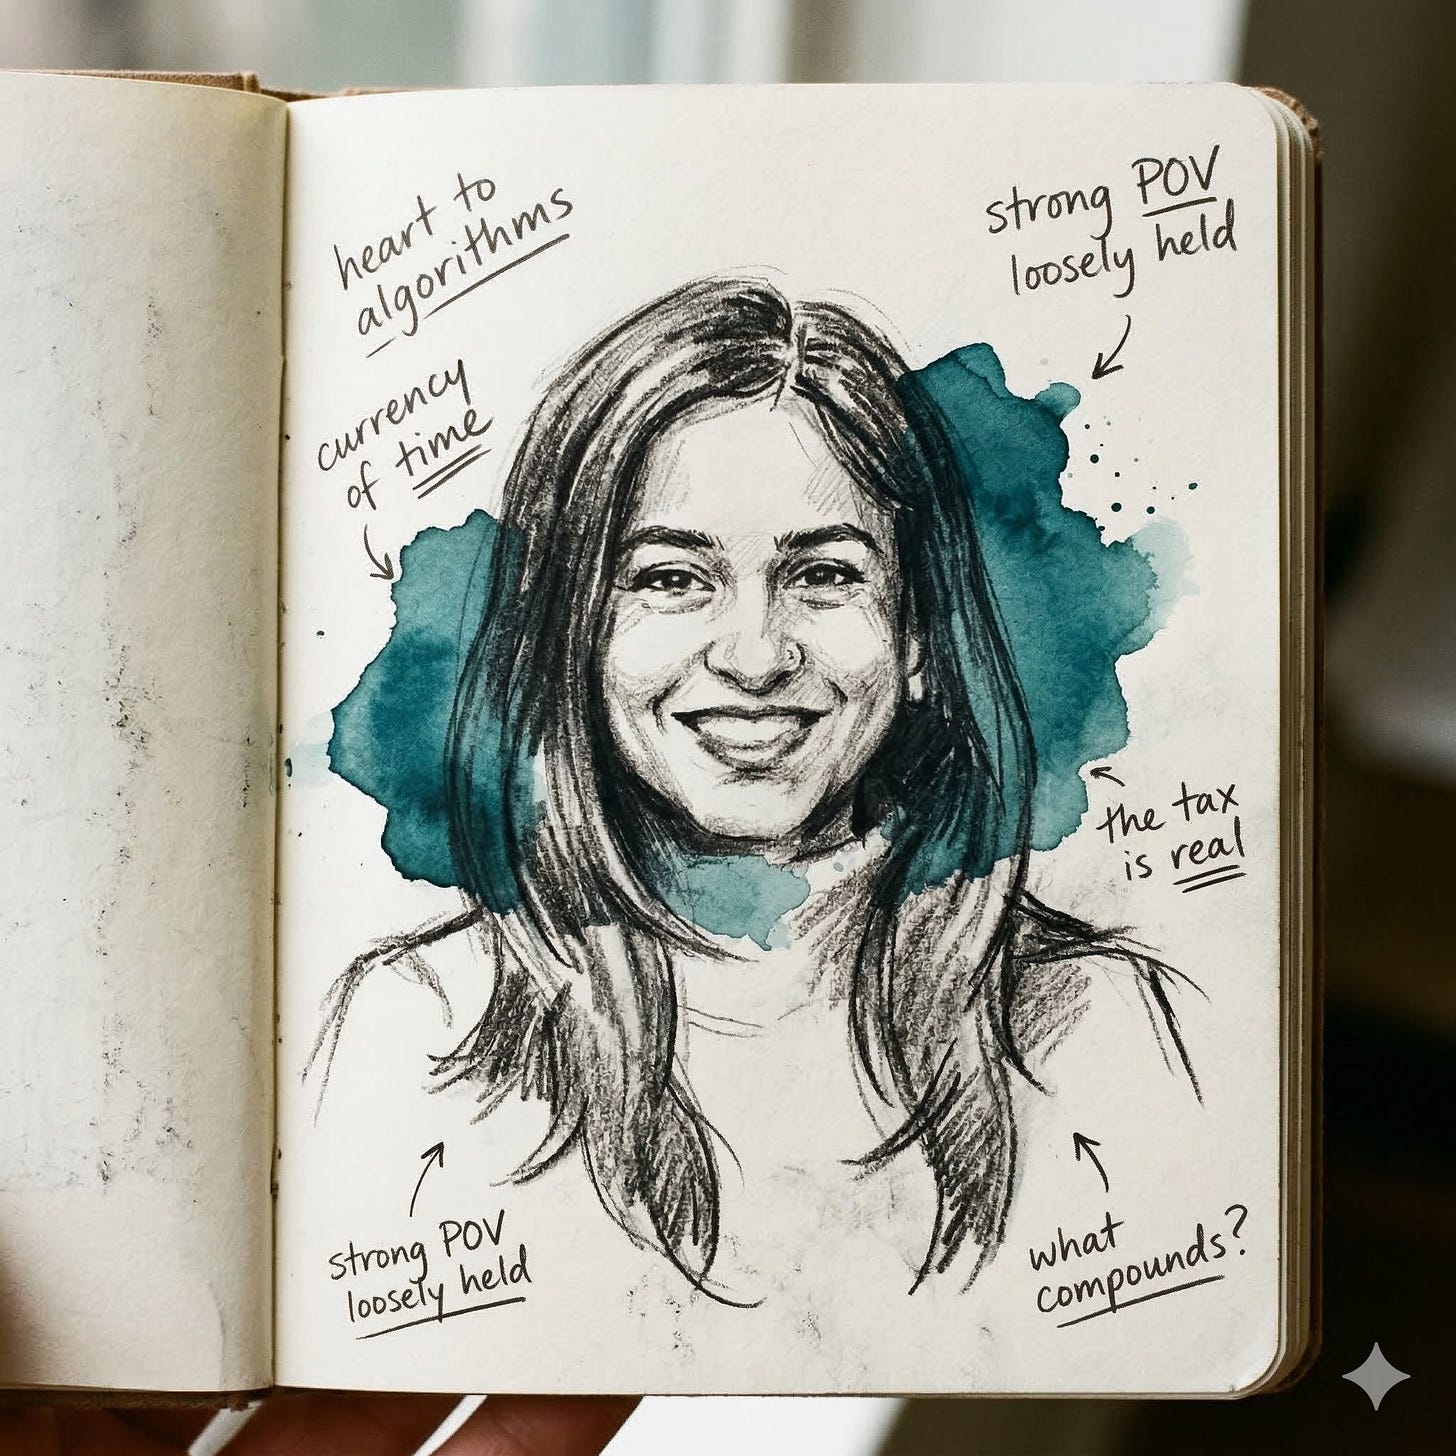 heart to
algorithms
strong POV
loosely held
currency
of time
the tax
is real
strong POV
loosely held
what
compounds?